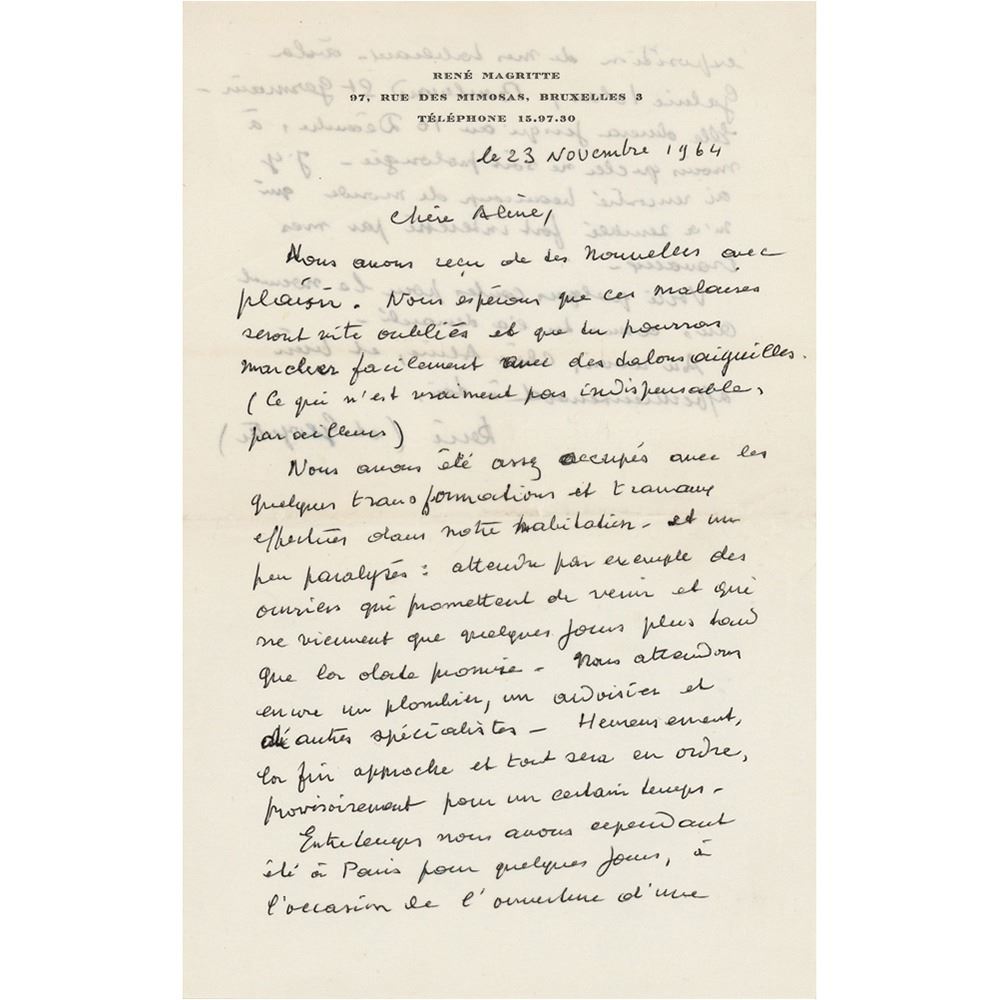 RENÉ MAGRITTE
97, RUE DES MIMOSAS, BRUXELLES 3
TÉLÉPHONE 15.97.30
le 23 Novembre 1964
Chère Aline,
Nous avons reçu de tes nouvelles avec
plaisir. Nous espérons que ces malaises
seront vite oubliés et que tu pourras
marcher facilement avec des talons aiguilles.
(Ce qui n'est vraiment pas indispensable,
par ailleurs)
Nous avons été assez occupés avec les
quelques transformations et travaux
effectués dans notre habitation - et un
peu paralysés : attendre par exemple des
ouvriers qui promettent de venir et qui
ne viennent que quelques jours plus tard
que la date promise - Nous attendons
encore un plombier, un ardoisier et
d'autres spécialistes - Heureusement,
la fin approche et tout sera en ordre,
provisoirement pour un certain temps -
Entretemps nous avons cependant
été à Paris pour quelques jours, à
l'occasion de l'ouverture d'une